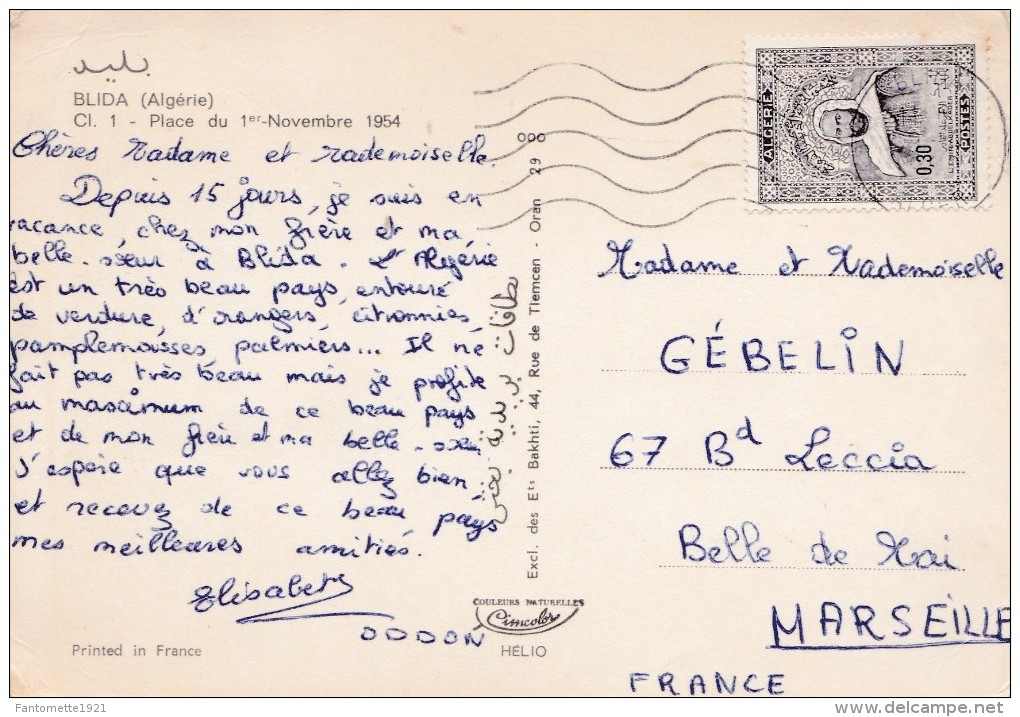 بليد
BLIDA (Algérie)
Cl. 1 - Place du 1er-Novembre 1954
Chères Madame et Mademoiselle.
Depuis 15 jours, je suis en
vacance, chez mon frère et ma
belle-soeur à Blida. L'Algérie
est un très beau pays, entouré
de verdure, d'orangers, citronniers,
pamplemousses, palmiers... Il ne
fait pas très beau mais je profite
au maximum de ce beau pays
et de mon frère et ma belle-soeur.
J'espère que vous allez bien,
et recevez de ce beau pays
mes meilleures amitiés.
Elisabeth
DODON
Printed in France
Excl. des Ets Bakhti, 44, Rue de Tlemcen - Oran 29
COULEURS NATURELLES
Cimcolor
HÉLIO
ALGERIE
0,30
POSTES
Madame et Mademoiselle
GÉBELIN
67 Bd Leccia
Belle de Mai
MARSEILLE
FRANCE
Fantomette1921